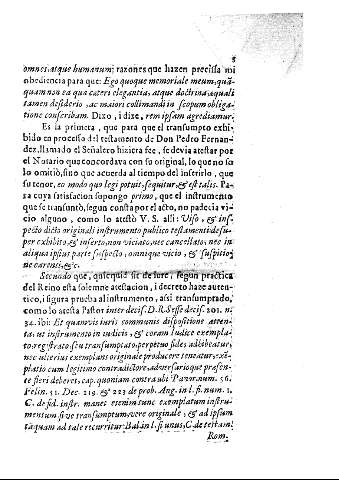 omnes, atque humanum; razones que hazen precissa mi
obediencia para que: Ego quoque memoriale meum, quã-
quam non ea qua cæteri elegantia, atque doctrina, æquali
tamen desiderio, ac maiori collimandi in scopum obliga-
tione conscribam. Dixo, i dixe, rem ipsam agrediamur.
Es la primera, que para que el transumpto exhi-
bido en processo del testamento de Don Pedro Fernan-
dez, llamado el Señalero hiziera fee, se devia atestar por
el Notario que concordava con su original, lo que no so-
lo omitiò, sino que acuerda al tiempo del inserirlo, que
su tenor, eo modo quo legi potuit, sequitur, & est talis. Pa-
ra cuya satisfacion supongo primo, que el instrumento
que se transuntò, segun consta por el acto, no padecia vi-
cio alguno, como lo atestò V. S. alli: Viso, & ins-
pecto dicto originali instrumento publico testamenti de su-
per exhibito, & inserto, non viciato, nec cancellato, nec in
aliqua ipsius parte suspecto, omnique vicio, & suspitio-
ne carenti, &c.
Secundo que, quicquid sit de iure, segun practica
del Reino esta solemne atestacion, i decreto haze auten-
tico, i figura prueba al instrumento, assi transumptado,
como lo atesta Pastor inter decis. D. R. Sesse decis. 201. n.
34. ibi: Et quamvis iuris communis dispositione atten-
ta, ut instrumentum in iudicio, & coram Iudice exempla-
to, registrato, seu transumptato, perpetuo fides adhibeatur,
nec ulterius exemplans originale producere teneatur, exẽ-
platio cum legitimo contradictore, adversarioque præsen-
te fieri deberet, cap. quoniam contra ubi Panor. num. 56.
Felin. 51. Dec. 219. & 223 de prob. Ang. in l. fi. num. 3.
C. de fid. instr. manet etenim tunc exemplatum instru-
mentum sive transumptum, vere originale, & ad ipsum
tãquam ad tale recurritur Bal. in l. si unus, C. de testam.
Rom.